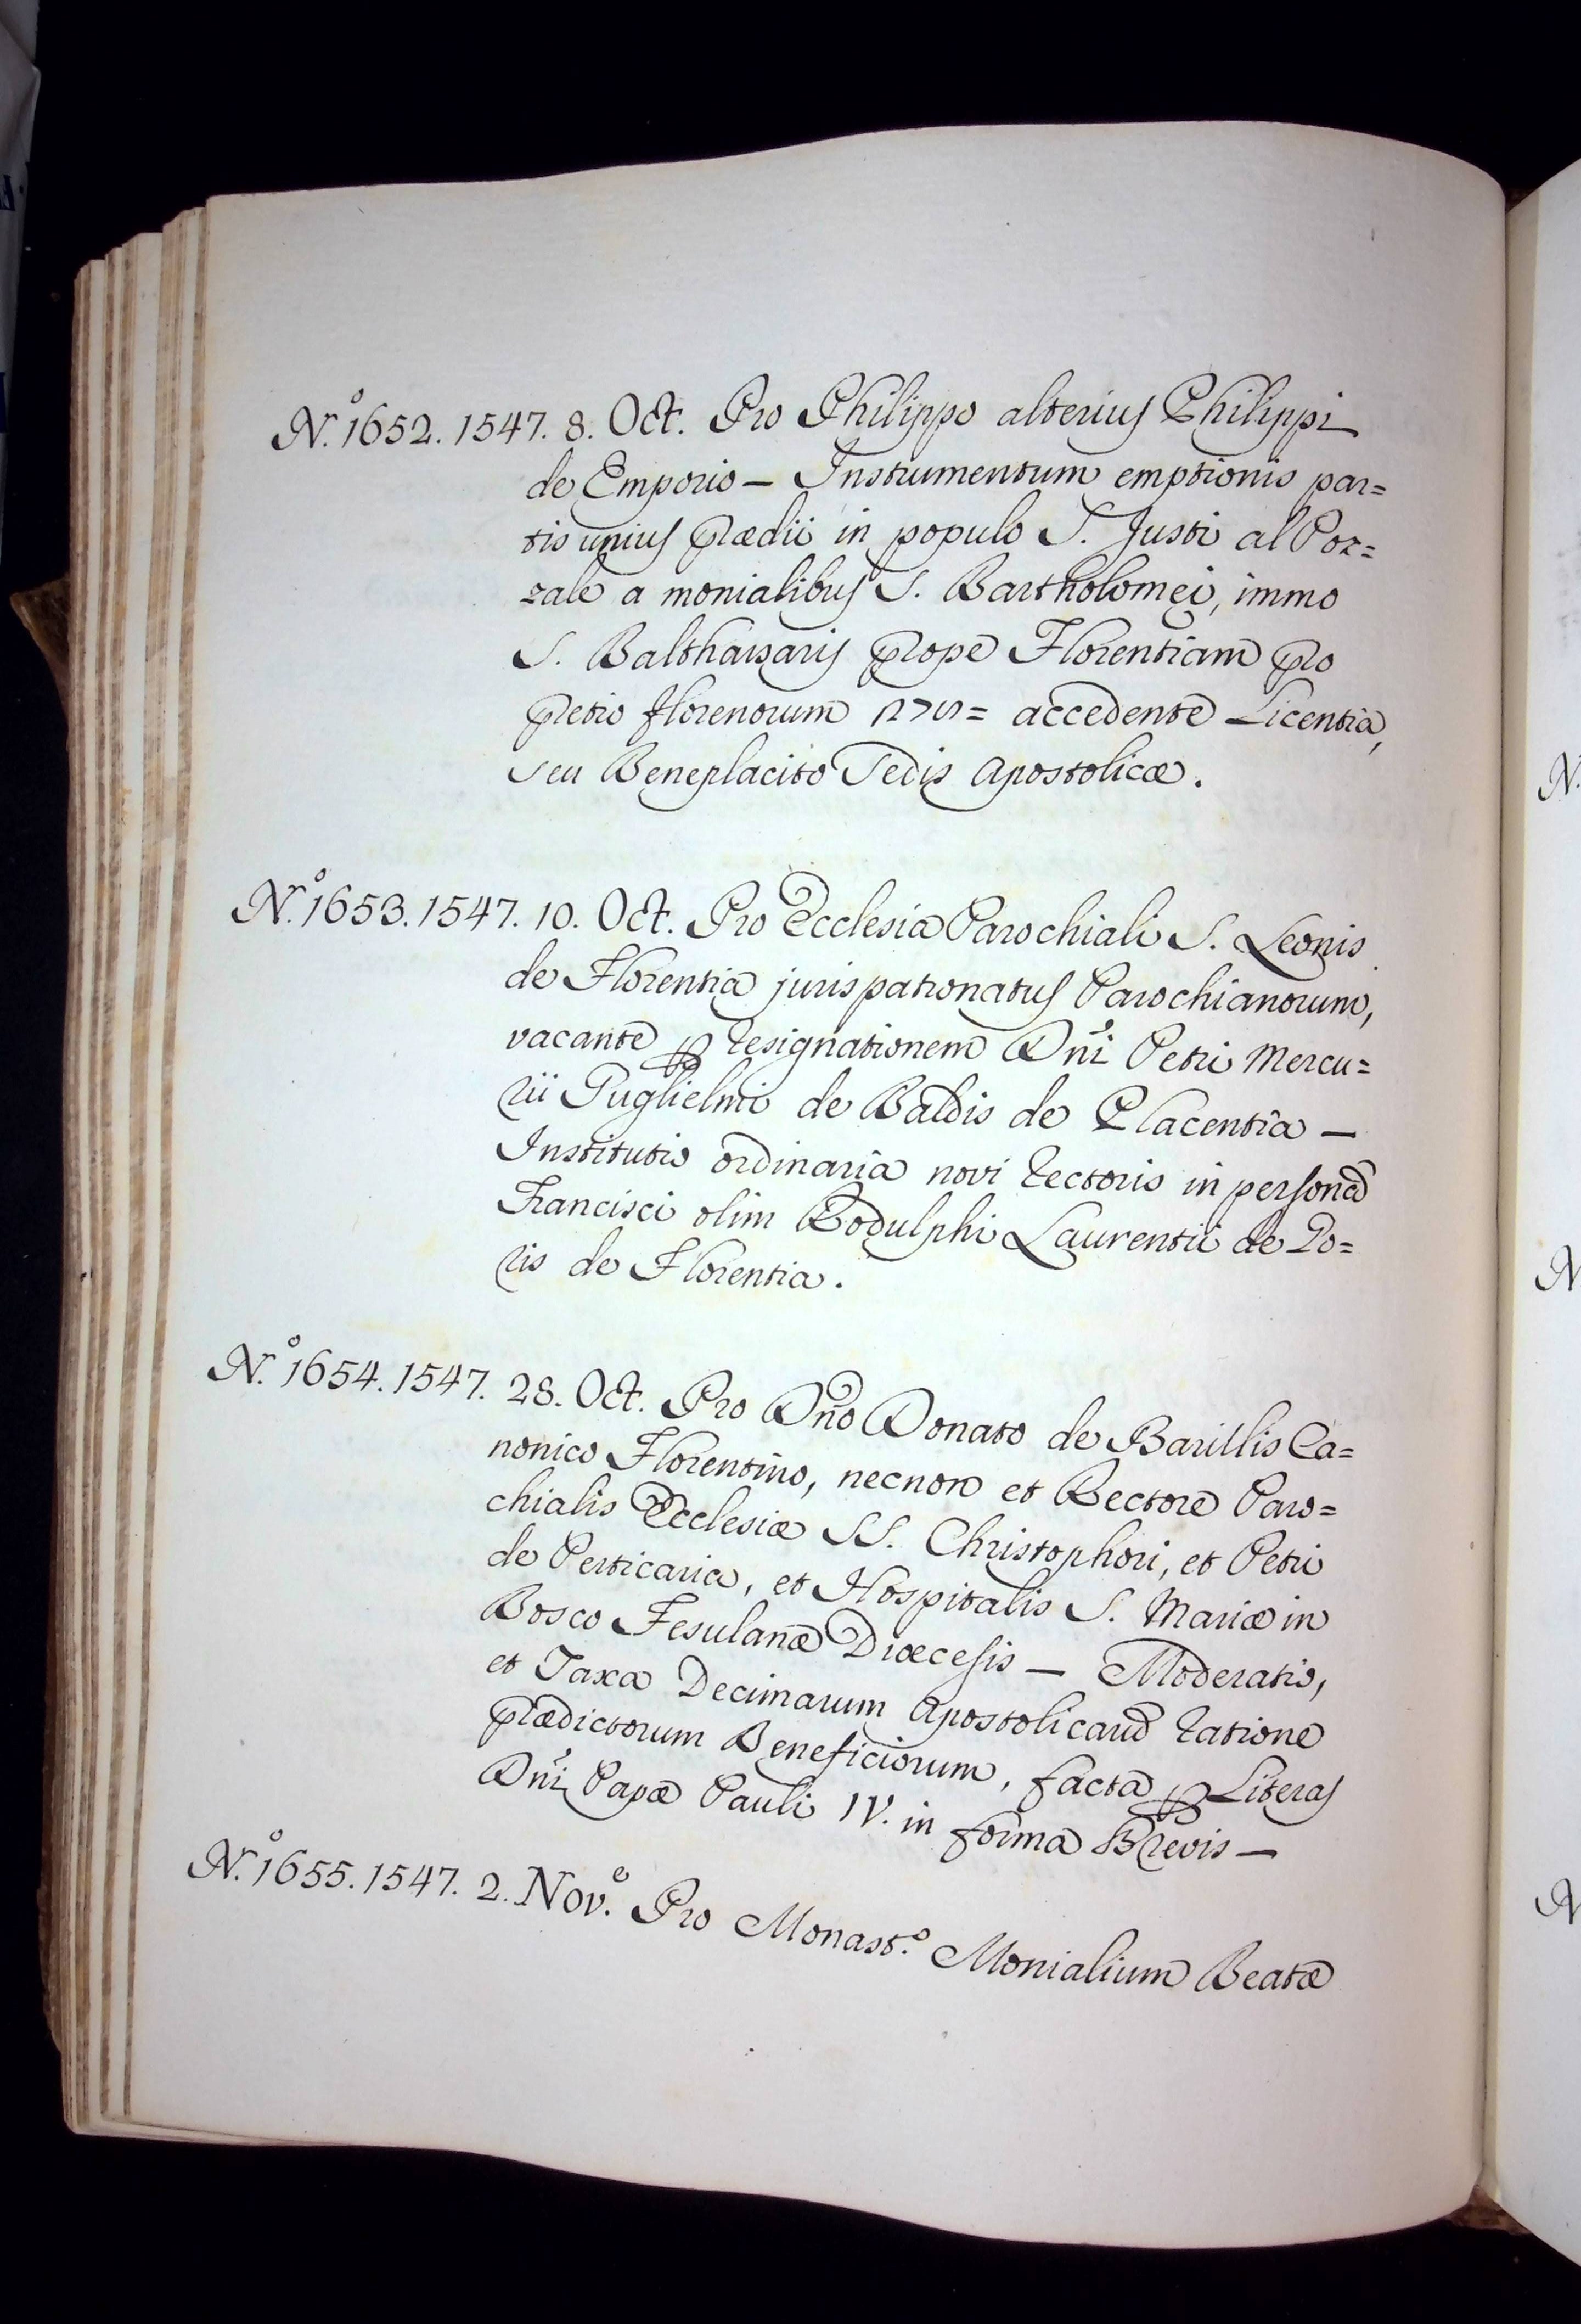 N.º 1652. 1547. 8. Oct. Pro Philippo alterius Philippi
de Emporio — Instrumentum emptionis par=
tis unius prædii in populo S. Justi al Poz=
zale a monialibus S. Bartholomei, immo
S. Balthassaris prope Florentiam pro
pretio florenorum = accedente Licentia,
seu Beneplacito Sedis Apostolicæ.
N.º 1653. 1547. 10. Oct. Pro Ecclesia Parochiali S. Leonis
de Florentia jurispatronatus Parochianorum,
vacante p resignationem Dni Petri Mercu=
rii Guglielmi de Baldis de Placentia —
Institutio ordinaria novi rectoris in persona
Francisci olim Rodulphi Laurentii de Lo=
ris de Florentia.
N.º 1654. 1547. 28. Oct. Pro Dno Donato de Barillis Ca=
nonico Florentino, necnon et Rectore Paro=
chialis Ecclesiæ SS. Christophori, et Petri
de Perticaria, et Hospitalis S. Mariæ in
Bosco Fesulanæ Diœcesis — Moderatio,
et Taxa Decimarum Apostolicarum ratione
prædictorum Beneficiorum, facta p Literas
Dni Papæ Pauli IV. in forma Brevis —
N.º 1655. 1547. 2. Nov.e Pro Monast.º Monialium Beatæ
N.
N
N